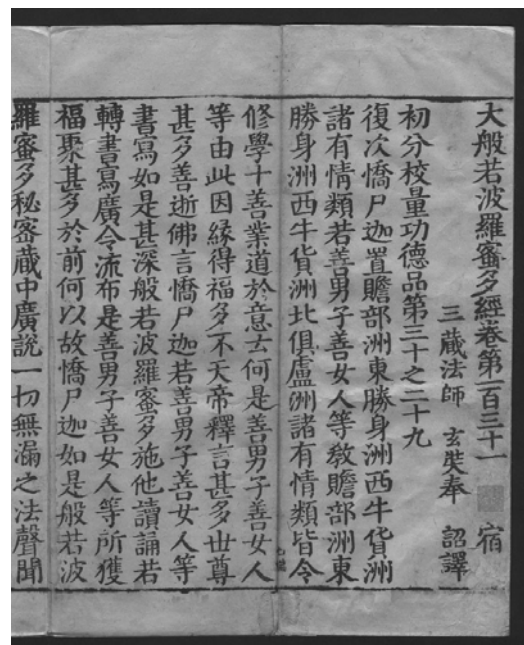 大般若波羅蜜多經卷第一百三十一 宿
三藏法師 玄奘奉 詔譯
初分校量功德品第三十之二十九
復次憍尸迦置贍部洲東勝身洲西牛貨洲
諸有情類若善男子善女人等教贍部洲東
勝身洲西牛貨洲北俱盧洲諸有情類皆令
修學十善業道於意云何是善男子善女人
等由此因緣得福多不天帝釋言甚多世尊
甚多善逝佛言憍尸迦若善男子善女人等
書寫如是甚深般若波羅蜜多施他讀誦若
轉書寫廣令流布是善男子善女人等所獲
福聚甚多於前何以故憍尸迦如是般若波
羅蜜多秘密藏中廣說一切無漏之法聲聞